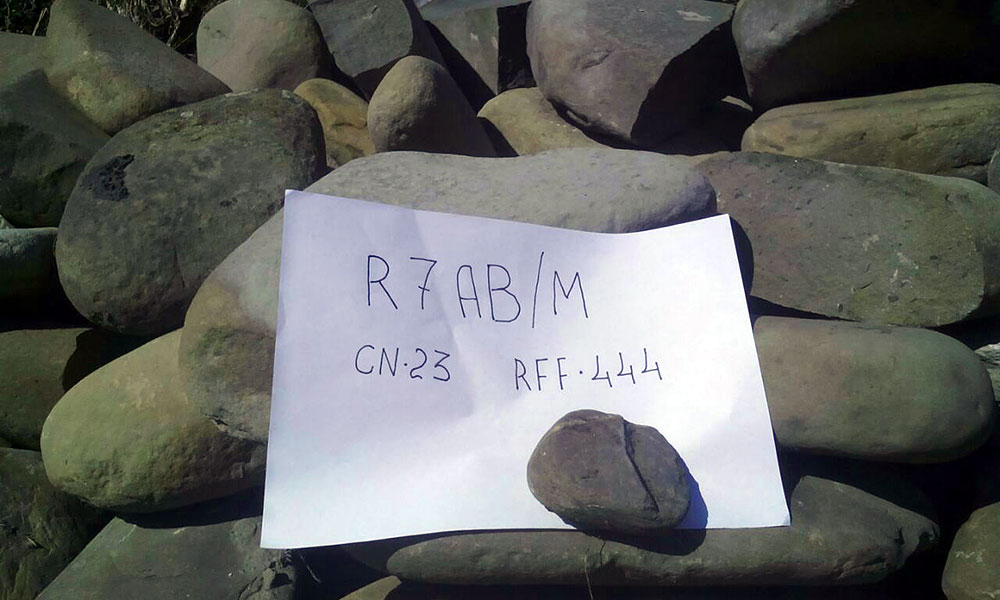 R7AB/M
CN·23 RFF·444